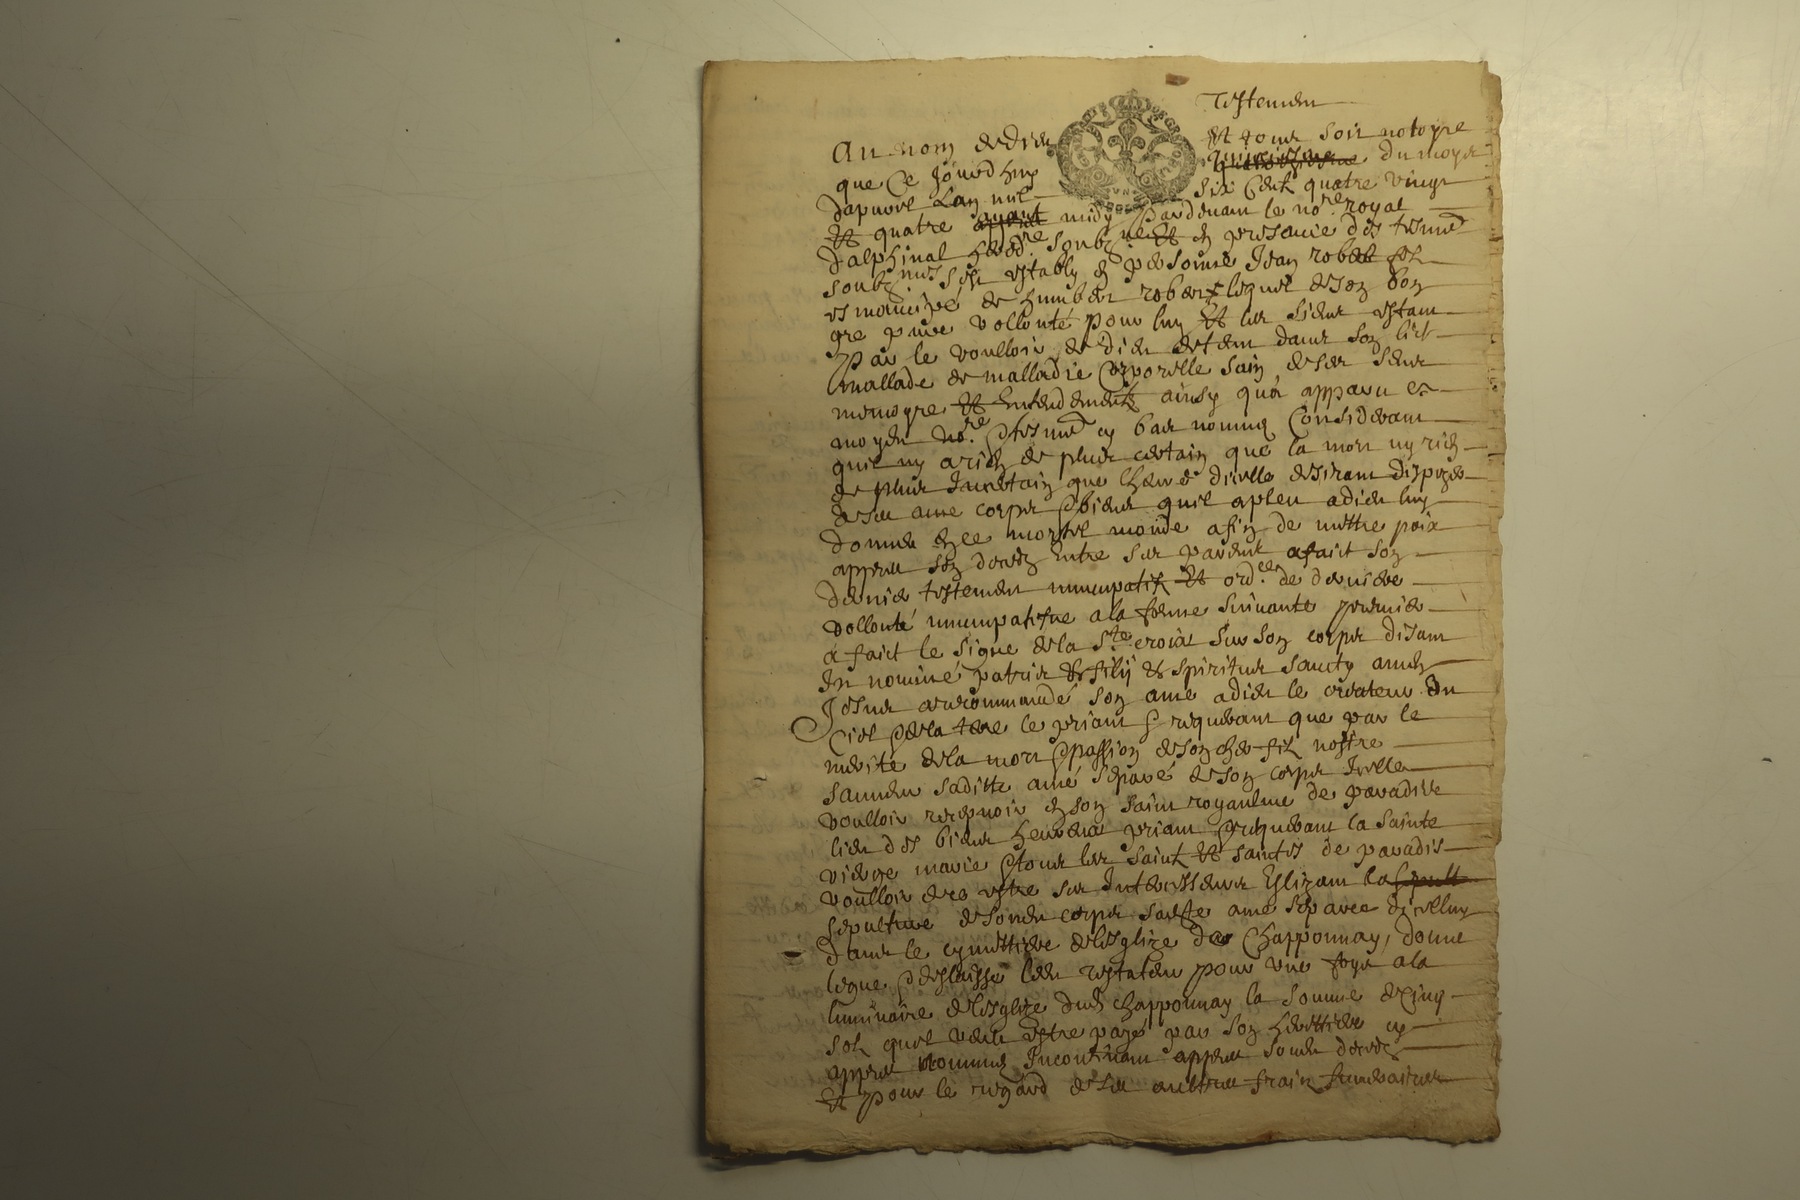 Testement
Au nom de dieu et tous soit notoyre
que ce jourdhuy du moys
dapuril lan mil six cents quatre vingt
et quatre avant midy pardeuant le no.re royal
dalphinal hered.re soubz.ne et en presance des tesmt
soubz.nes sest estably en personne Jean robert filz
esmancipé de humbert robert lequel de son bon
gre pure vollonté pour luy et les siens estant
par le voulloir de dieu detenu dans son lict
mallade de malladie corporelle sain de ses sens
memoyre et entendements ainsy qua apparu es
moyen no.re tesmt cy bas nommez considerant
quil ny a rien de plus certain que la mort ny rien
de plus Incertain que lheure dicelle desirant dispozer
de ses ame corps biens quil a pleu a dieu luy
donner en ce mortel monde afin de mettre paix
appres son deces entre ses parents a faict son
dernier testement nuncupatif et ord.ce de derniere
vollonté nuncupatifue a la forme suiuante premier
a faict le signe de la s.te croix sur son corps disant
In nominé patris et filij et spiritus sancty amen
Jesus a recommandé son ame a dieu le createur du
ciel de la terre le priant requerant que par le
merité de la mort passion de son cher filz nostre
sauueur saditte amé séparé de son corps Icelle
voulloir recepuoir en son saint royaulme de paradis
lieu des biens heureux priant requerant la sainte
vierge marie tous les saints et saintes de paradis
voulloir estre ses Intercesseurs Eslizant
sepulture de sondit corps saditte ame separee dicelluy
dans le cymettiere de lesglize de Chapponnay, donne
legue deslaisse ledit testateur pour une foys a la
luminaire de lesglize dudit chapponnay la somme de cinq
solz quil veut estre payé par son herittiere cy
appres nommé Incontinant appres sondit deces
Et pour le regard de ses aultres frais funeraires